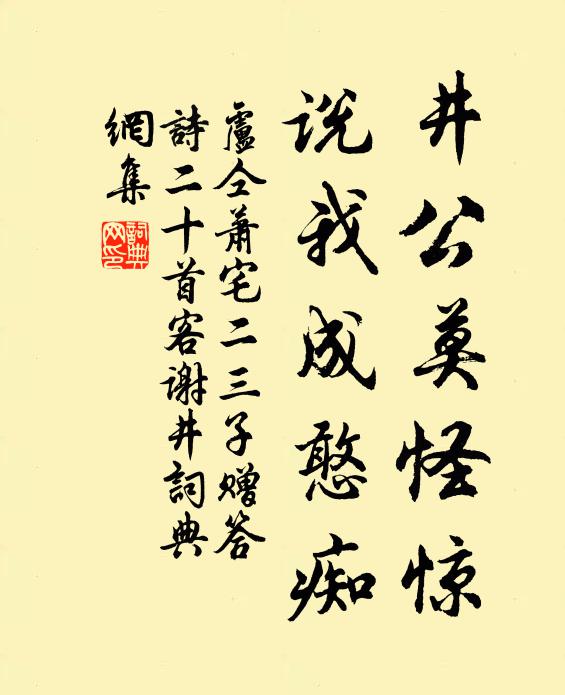 井公莫怪惊
说我成憨痴
盧仝萧宅二三子赠答
詩二十首客谢井詞典
網集
詞典
网印